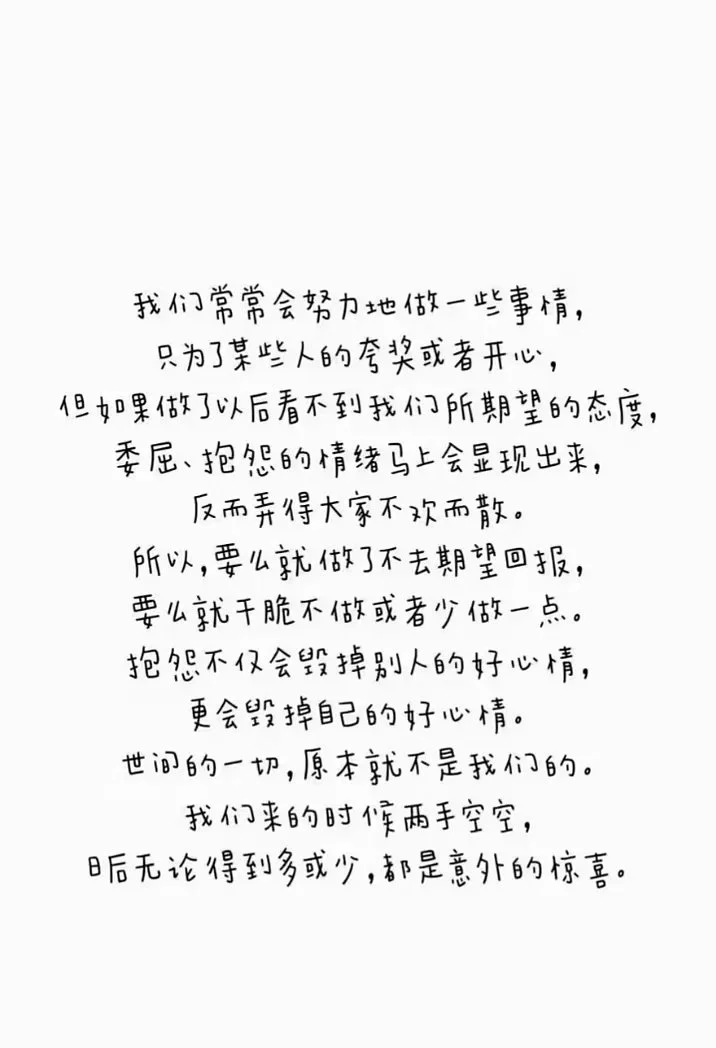 我们常常会努力地做一些事情，
只为了某些人的夸奖或者开心，
但如果做了以后看不到我们所期望的态度，
委屈、抱怨的情绪马上会显现出来，
反而弄得大家不欢而散。
所以，要么就做了不去期望回报，
要么就干脆不做或者少做一点。
抱怨不仅会毁掉别人的好心情，
更会毁掉自己的好心情。
世间的一切，原本就不是我们的。
我们来的时候两手空空，
日后无论得到多或少，都是意外的惊喜。